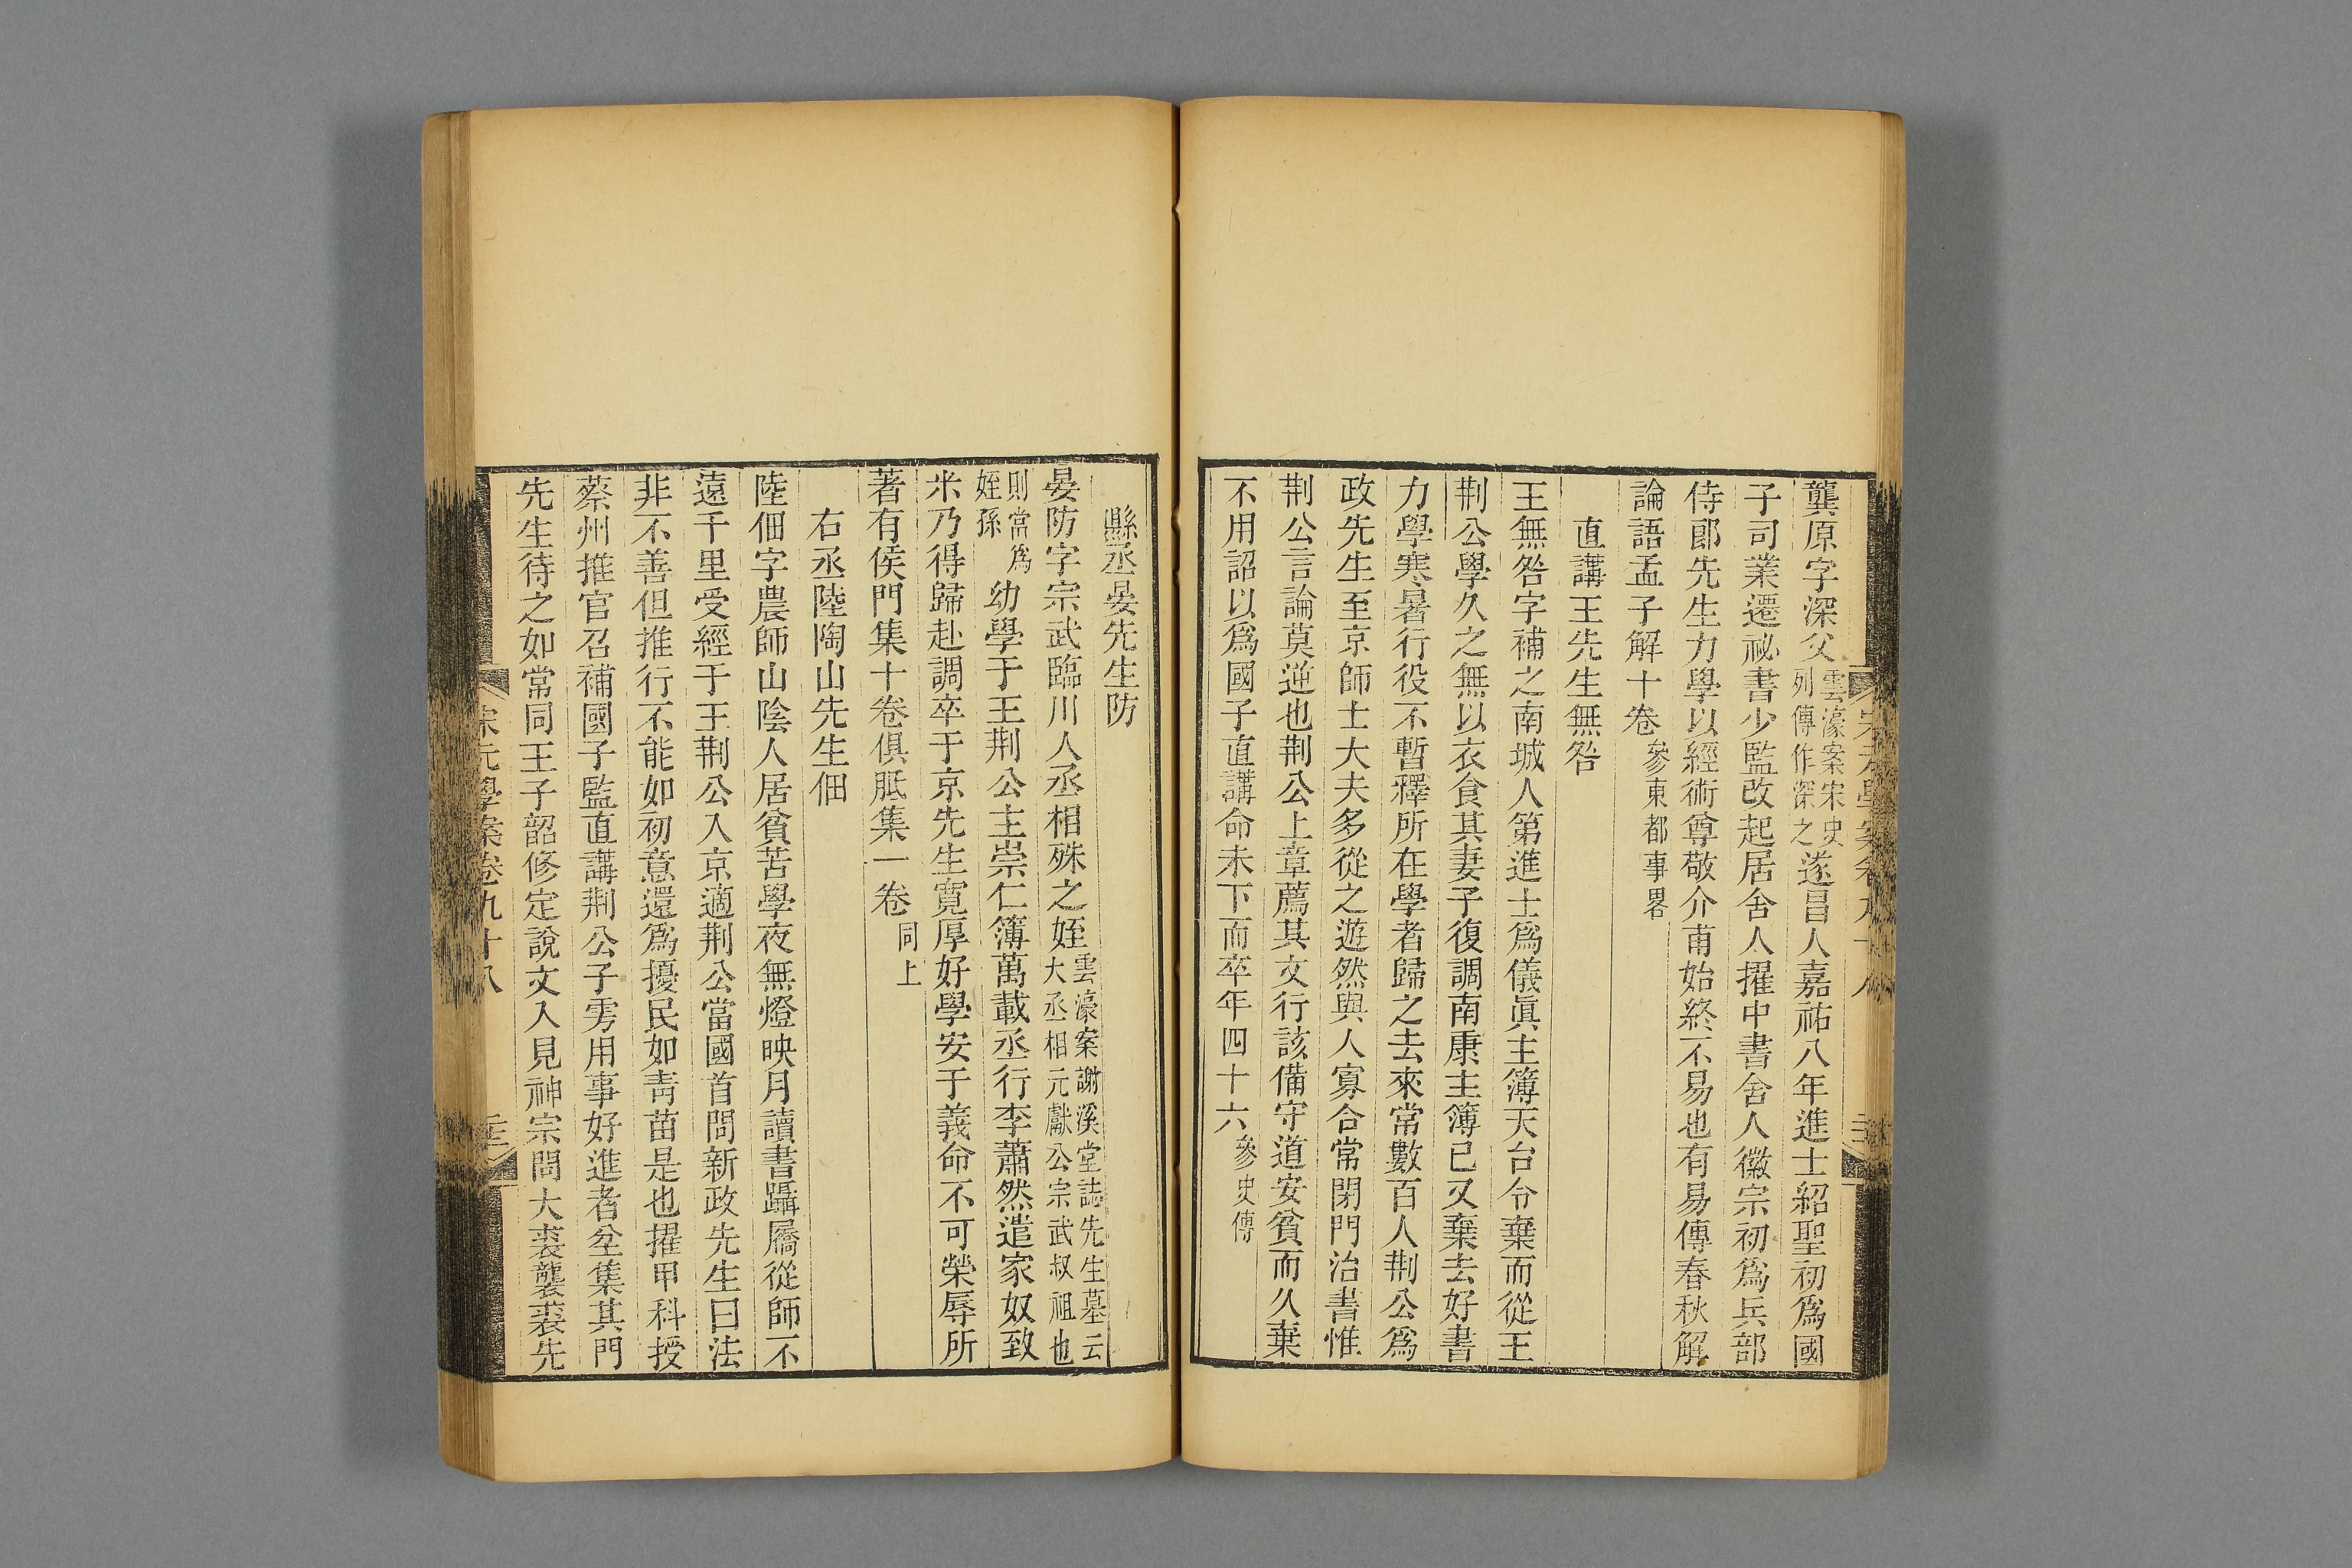 龔原字深父雲濠案宋史列傳作深之遂昌人嘉祐八年進士紹聖初爲國
子司業遷祕書少監改起居舍人擢中書舍人徽宗初爲兵部
侍郎先生力學以經術尊敬介甫始終不易也有易傳春秋解
論語孟子解十卷參東都事畧
直講王先生無咎
王無咎字補之南城人第進士爲儀眞主簿天台令棄而從王
荆公學久之無以衣食其妻子復調南康主簿已又棄去好書
力學寒暑行役不暫釋所在學者歸之去來常數百人荆公爲
政先生至京師士大夫多從之遊然與人寡合常閉門治書惟
荆公言論莫逆也荆公上章薦其文行該備守道安貧而久棄
不用詔以爲國子直講命未下而卒年四十六參史傳
縣丞晏先生防
晏防字宗武臨川人丞相殊之姪雲濠案謝溪堂誌先生墓云大丞相元獻公宗武叔祖也
則當爲姪孫幼學于王荆公主崇仁簿萬載丞行李蕭然遣家奴致
米乃得歸赴調卒于京先生寬厚好學安于義命不可榮辱所
著有侯門集十卷俱胝集一卷同上
右丞陸陶山先生佃
陸佃字農師山陰人居貧苦學夜無燈映月讀書躡屩從師不
遠千里受經于王荆公入京適荆公當國首問新政先生曰法
非不善但推行不能如初意還爲擾民如靑苗是也擢甲科授
蔡州推官召補國子監直講荆公子雱用事好進者坌集其門
先生待之如常同王子韶修定說文入見神宗問大裘襲裘先
宋元學案卷九十八